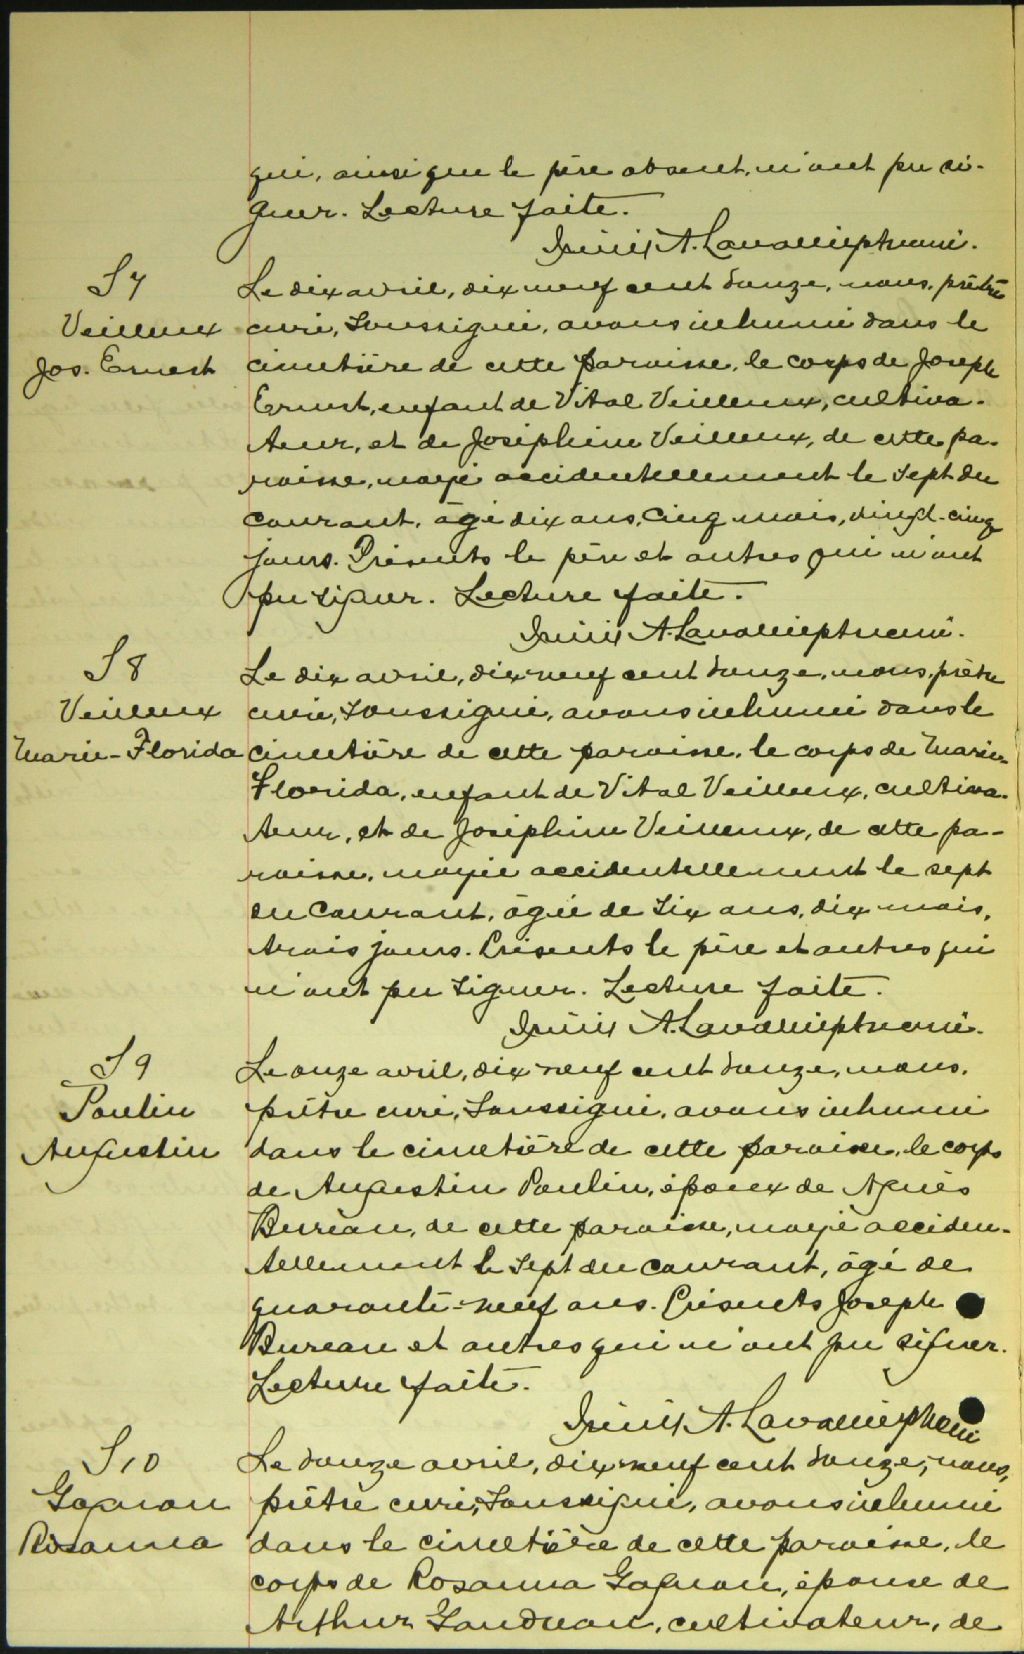 qui, ainsi que le père absent, n'ont pu si-
gner. Lecture faite.
A. Lavallée ptre curé.
S7
Veilleux
Jos. Ernest
Le dix avril, dix neuf cent douze, nous, prêtre
curé, soussigné, avons inhumé dans le
cimetière de cette paroisse, le corps de Joseph
Ernest, enfant de Vital Veilleux, cultiva-
teur, et de Joséphine Veilleux, de cette pa-
roisse, noyé accidentellement le sept du
courant, âgé dix ans, cinq mois, vingt-cinq
jours. Présents le père et autres qui n'ont
pu signer. Lecture faite.
A. Lavallée ptre curé.
S8
Veilleux
Marie-Florida
Le dix avril, dix neuf cent douze, nous, prêtre
curé, soussigné, avons inhumé dans le
cimetière de cette paroisse, le corps de Marie-
Florida, enfant de Vital Veilleux, cultiva-
teur, et de Joséphine Veilleux, de cette pa-
roisse, noyée accidentellement le sept
du courant, âgée de six ans, dix mois,
trois jours. Présents le père et autres qui
n'ont pu signer. Lecture faite.
A. Lavallée ptre curé.
S9
Poulin
Augustin
Le onze avril, dix neuf cent douze, nous,
prêtre curé, soussigné, avons inhumé
dans le cimetière de cette paroisse, le corps
de Augustin Poulin, époux de Agnès
Bureau, de cette paroisse, noyé acciden-
tellement le sept du courant, âgé de
quarante-neuf ans. Présents Joseph
Bureau et autres qui n'ont pu signer.
Lecture faite.
A. Lavallée ptre curé
S10
Gagnon
Rosanna
Le douze avril, dix neuf cent douze, nous,
prêtre curé, soussigné, avons inhumé
dans le cimetière de cette paroisse, le
corps de Rosanna Gagnon, épouse de
Arthur Gaudreau, cultivateur, de